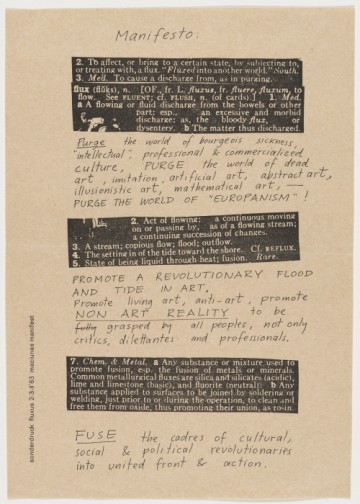 Manifesto:
2. To affect, or bring to a certain state, by subjecting to,
or treating with, a flux. "Fluxed into another world." South.
3. Med. To cause a discharge from, as in purging.
flux (flŭks), n. [OF., fr. L. fluxus, fr. fluere, fluxum, to
flow. See FLUENT; cf. FLUSH, n. (of cards).] 1. Med.
a A flowing or fluid discharge from the bowels or other
part; esp., an excessive and morbid
discharge; as, the bloody flux, or
dysentery. b The matter thus discharged.
Purge the world of bourgeois sickness,
"intellectual", professional & commercialized
culture, PURGE the world of dead
art, imitation, artificial art, abstract art,
illusionistic art, mathematical art, —
PURGE THE WORLD OF "EUROPANISM"!
2. Act of flowing: a continuous moving
on or passing by, as of a flowing stream;
a continuing succession of changes.
3. A stream; copious flow; flood; outflow.
4. The setting in of the tide toward the shore. Cf. REFLUX.
5. State of being liquid through heat; fusion. Rare.
PROMOTE A REVOLUTIONARY FLOOD
AND TIDE IN ART.
Promote living art, anti-art, promote
NON ART REALITY to be
fully grasped by all peoples, not only
critics, dilettantes and professionals.
7. Chem. & Metal. a Any substance or mixture used to
promote fusion, esp. the fusion of metals or minerals.
Common metallurgical fluxes are silica and silicates (acidic),
lime and limestone (basic), and fluorite (neutral). b Any
substance applied to surfaces to be joined by soldering or
welding, just prior to or during the operation, to clean and
free them from oxide, thus promoting their union, as rosin.
FUSE the cadres of cultural,
social & political revolutionaries
into united front & action.
sonderdruck fluxus 2-3-II'63 maciunas manifest